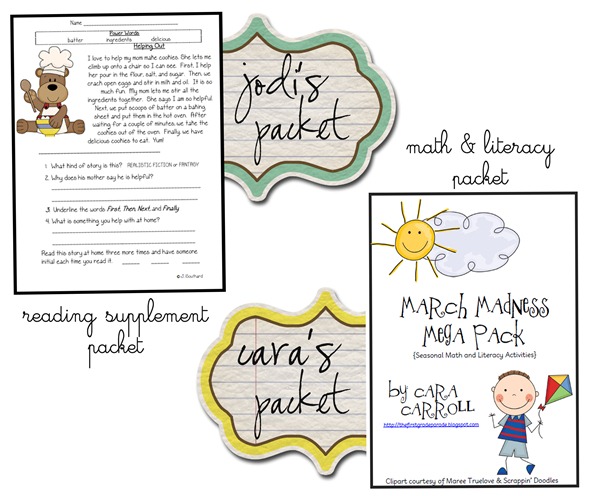 Name
Power Words
batter ingredients delicious
Helping Out
I love to help my mom make cookies. She lets me
climb up onto a chair so I can see. First, I help
her pour in the flour, salt, and sugar. Then, we
crack open eggs and stir in milk and oil. It is so
much fun. My mom lets me stir all the
ingredients together. She says I am so helpful.
Next, we put scoops of batter on a baking
sheet and put them in the hot oven. After
waiting for a couple of minutes, we take the
cookies out of the oven. Finally, we have
delicious cookies to eat. Yum!
1. What kind of story is this? REALISTIC FICTION or FANTASY
2. Why does his mother say he is helpful?
3. Underline the words First, Then, Next, and Finally.
4. What is something you help with at home?
Read this story at home three more times and have someone
initial each time you read it.
©J. Southard
reading supplement
packet
jodi's
packet
math & literacy
packet
cara's
packet
MARCH MADNESS
MEGA PACK
{Seasonal Math and Literacy Activities}
by CARA
CARROLL
http://thefirstgradeparade.blogspot.com
Clipart courtesy of Maree Truelove & Scrappin' Doodles